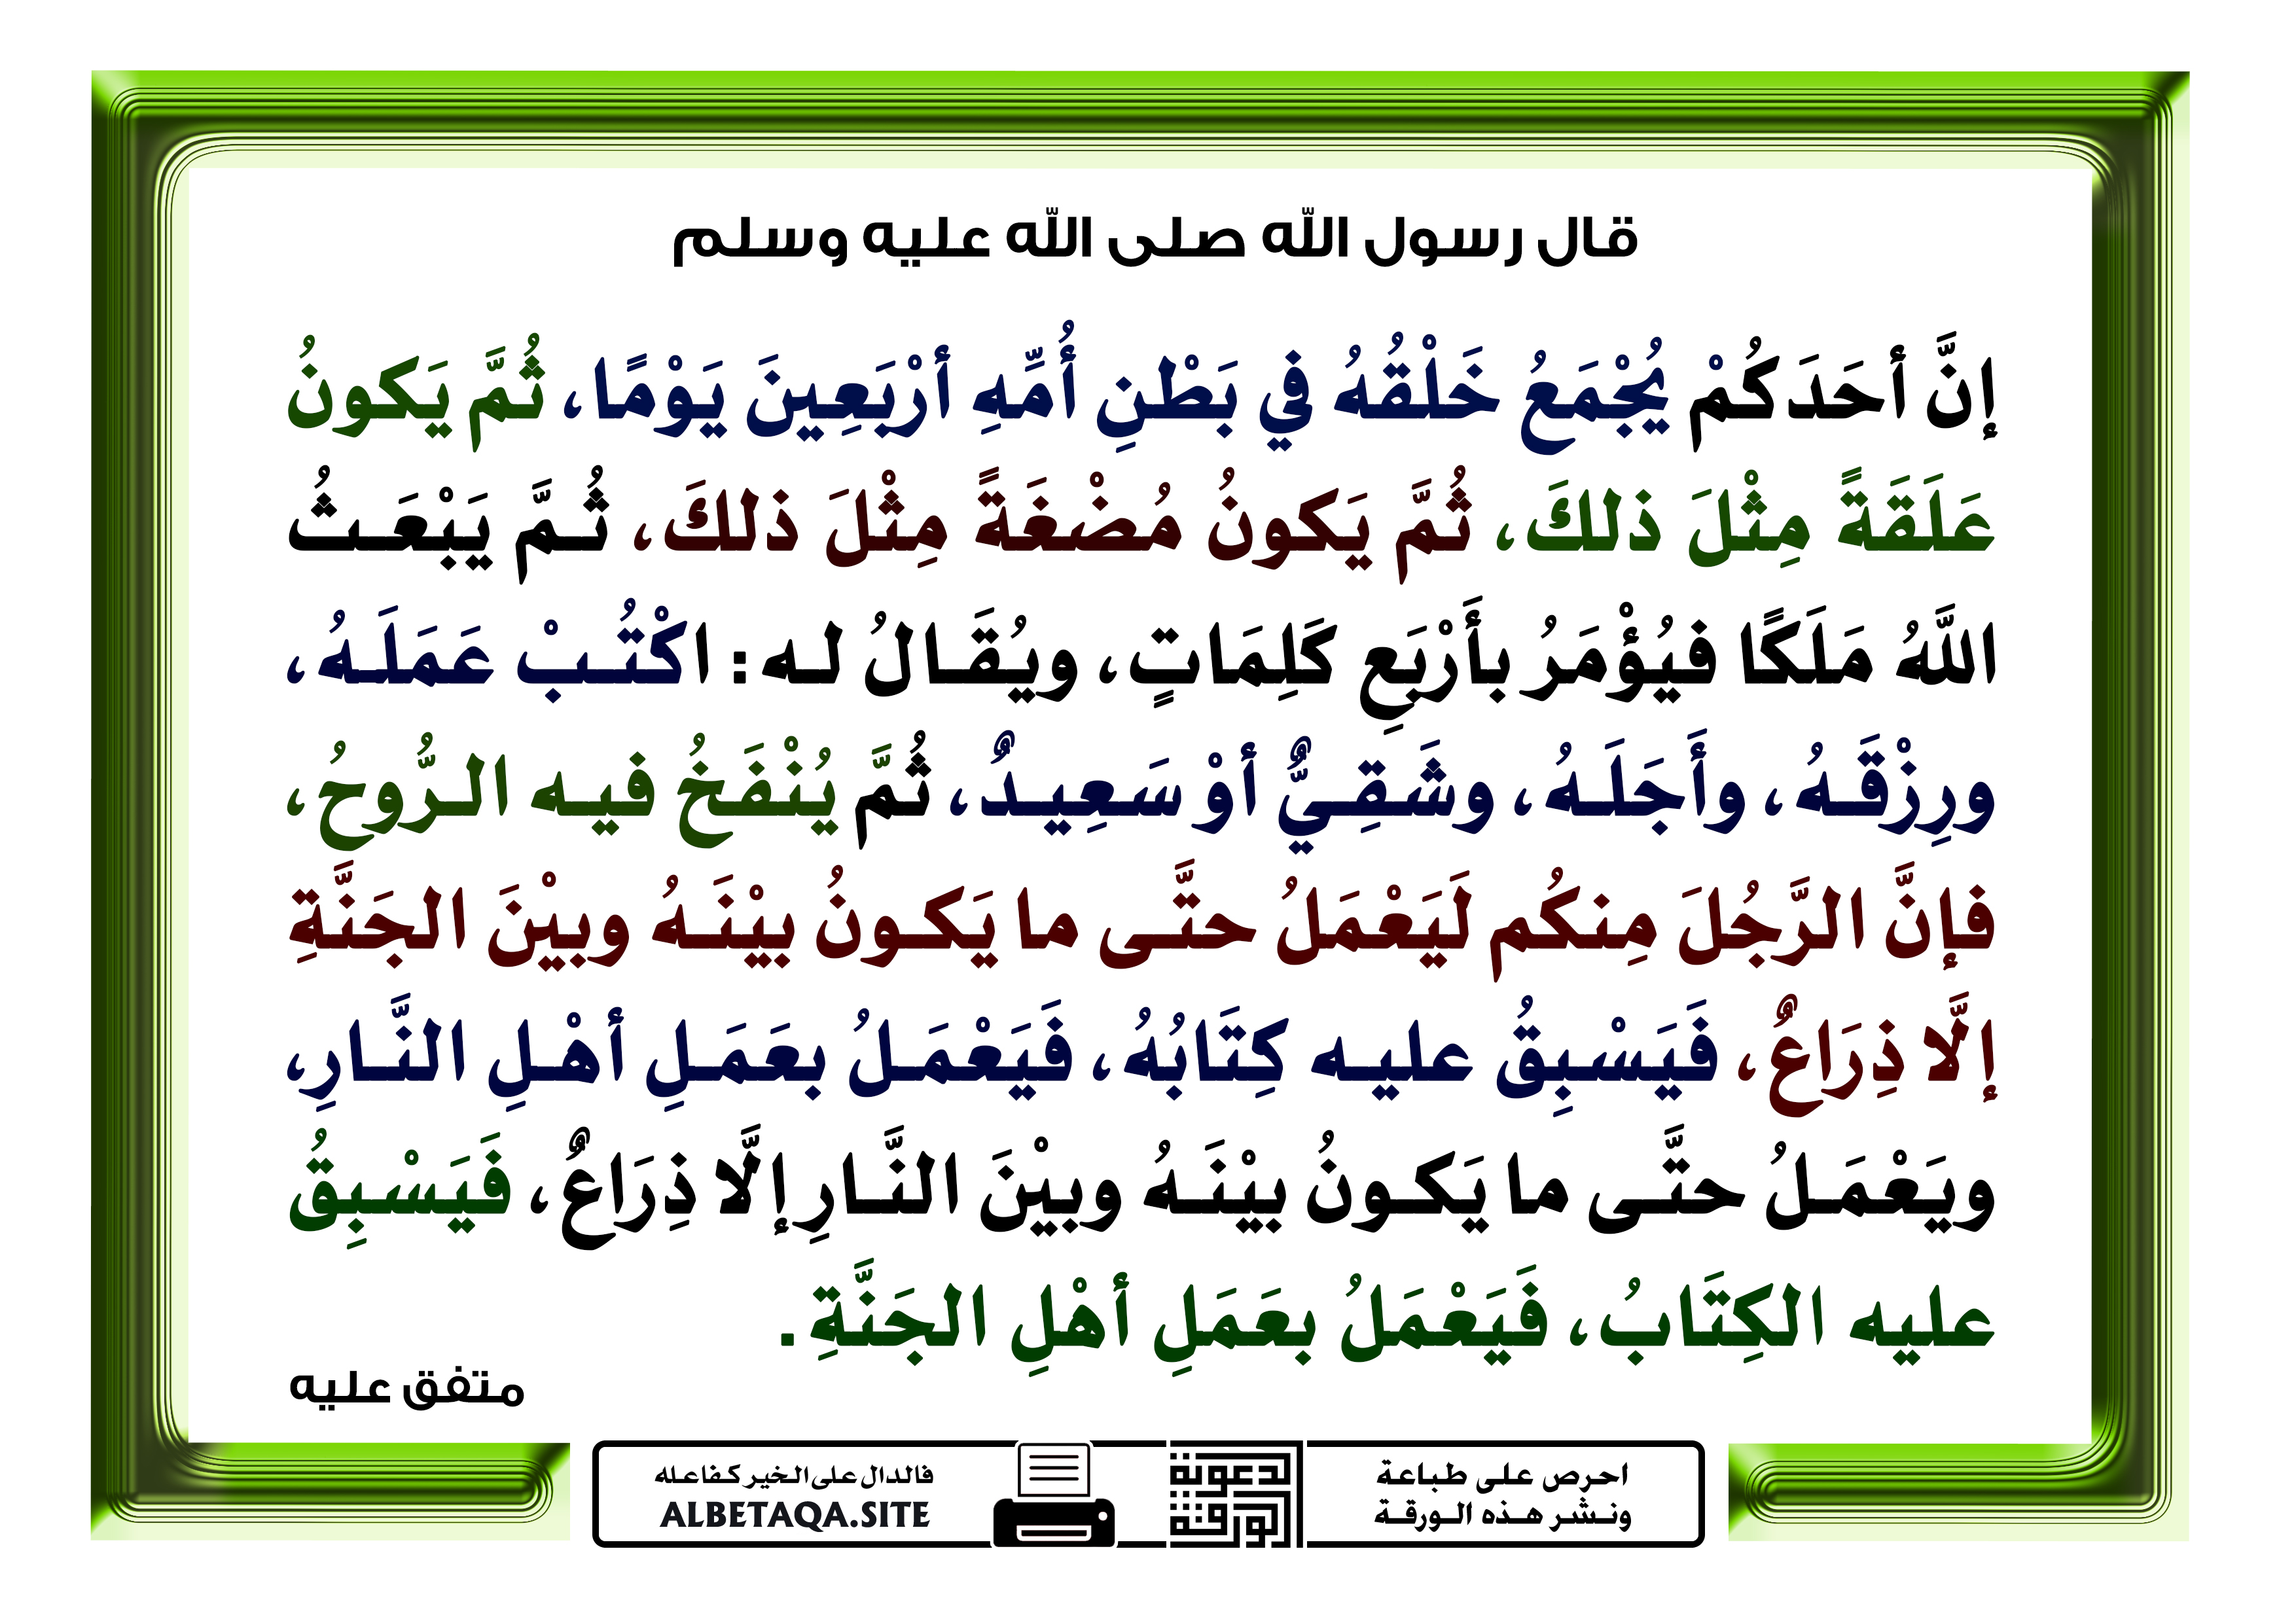 قال رسول الله صلى الله عليه وسلم
إنَّ أحَدَكُمْ يُجْمَعُ خَلْقُهُ في بَطْنِ أُمِّهِ أرْبَعِينَ يَوْمًا، ثُمَّ يَكونُ
عَلَقَةً مِثْلَ ذلكَ، ثُمَّ يَكونُ مُضْغَةً مِثْلَ ذلكَ، ثُمَّ يَبْعَثُ
اللَّهُ مَلَكًا فيُؤْمَرُ بأَرْبَعِ كَلِمَاتٍ، ويُقَالُ له: اكْتُبْ عَمَلَهُ،
ورِزْقَهُ، وأَجَلَهُ، وشَقِيٌّ أوْ سَعِيدٌ، ثُمَّ يُنْفَخُ فيه الرُّوحُ،
فإنَّ الرَّجُلَ مِنكُم لَيَعْمَلُ حتَّى ما يَكونُ بيْنَهُ وبيْنَ الجَنَّةِ
إلَّا ذِرَاعٌ، فَيَسْبِقُ عليه كِتَابُهُ، فَيَعْمَلُ بعَمَلِ أهْلِ النَّارِ،
ويَعْمَلُ حتَّى ما يَكونُ بيْنَهُ وبيْنَ النَّارِ إلَّا ذِرَاعٌ، فَيَسْبِقُ
عليه الكِتَابُ، فَيَعْمَلُ بعَمَلِ أهْلِ الجَنَّةِ.
متفق عليه
احرص على طباعة
ونشر هذه الورقة
لدعوية
الورقة
فالدال على الخير كفاعله
ALBETAQA.SITE